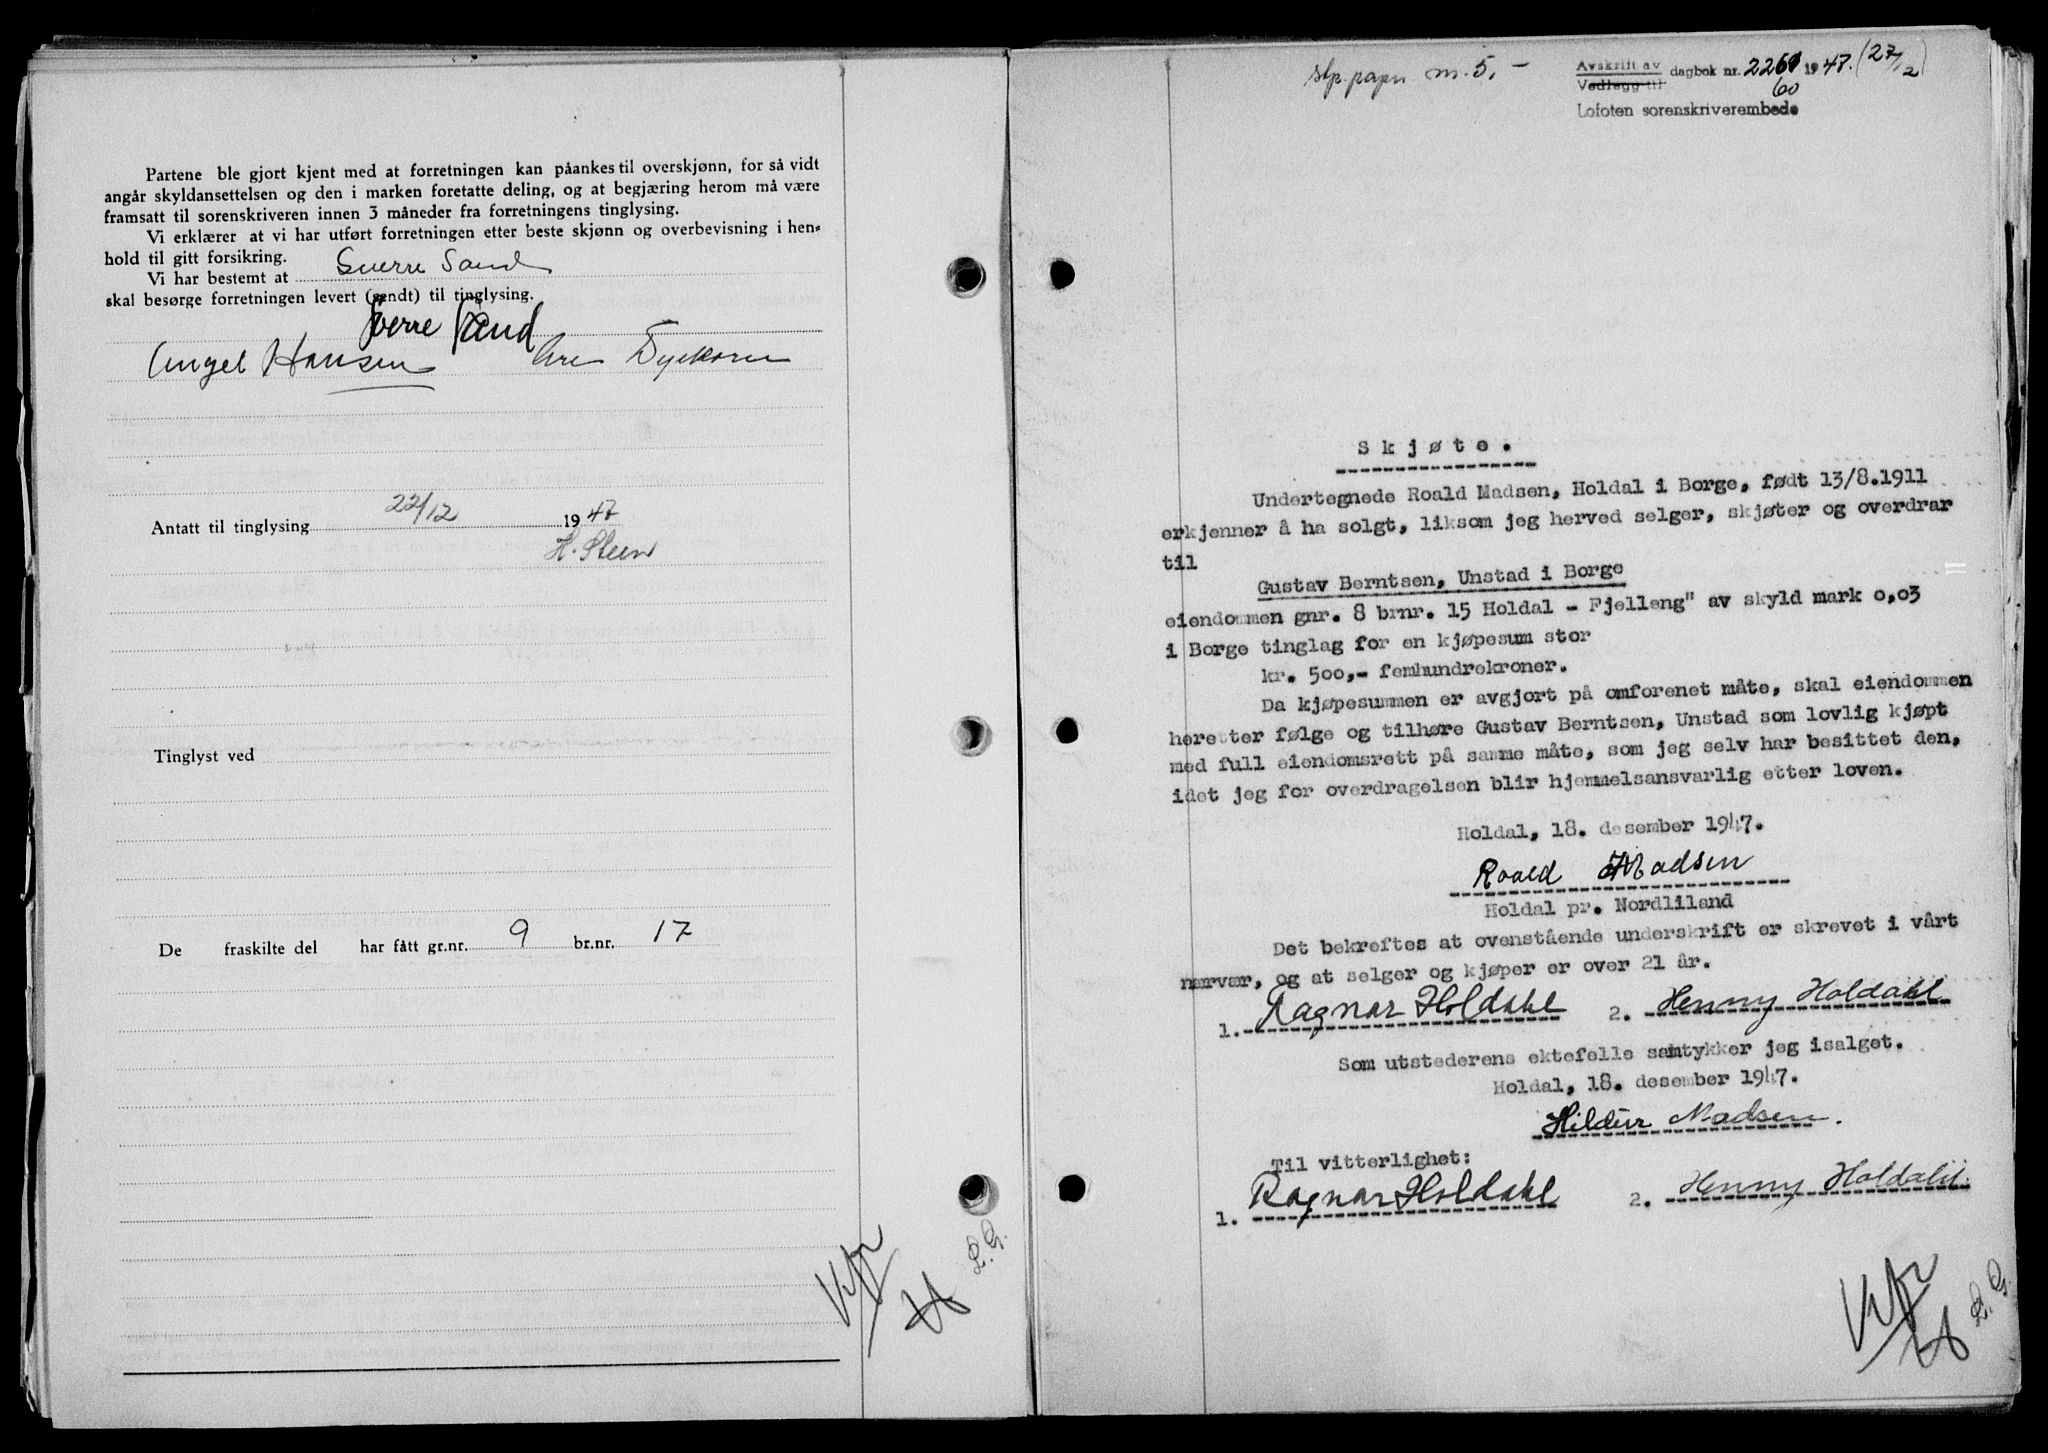 Partene ble gjort kjent med at forretningen kan påankes til overskjønn, for så vidt
angår skyldansettelsen og den i marken foretatte deling, og at begjæring herom må være
framsatt til sorenskriveren innen 3 måneder fra forretningens tinglysing.
Vi erklærer at vi har utført forretningen etter beste skjønn og overbevisning i hen-
hold til gitt forsikring.
Vi har bestemt at Sverre Sand
skal besørge forretningen levert (sendt) til tinglysing.
Sverre Sand
Angel Hansen
Antatt til tinglysing 22/12 1947
H. Steen
Tinglyst ved
De fraskilte del har fått gr.nr. 9 br.nr. 17
stp. papir m. 5,-
Avskrift av
Vedlegg til dagbok nr. 2261 1947. (27/12)
60
Lofoten sorenskriverembede
Skjøte.
Undertegnede Roald Madsen, Holdal i Borge, født 13/8.1911
erkjenner å ha solgt, liksom jeg herved selger, skjøter og overdrar
til
Gustav Berntsen, Unstad i Borge
eiendommen gnr. 8 brnr. 15 Holdal - Fjelleng" av skyld mark 0,03
i Borge tinglag for en kjøpesum stor
kr. 500,- femhundrekroner.
Da kjøpesummen er avgjort på omforenet måte, skal eiendommen
heretter følge og tilhøre Gustav Berntsen, Unstad som lovlig kjøpt
med full eiendomsrett på samme måte, som jeg selv har besittet den,
idet jeg for overdragelsen blir hjemmelsansvarlig etter loven.
Holdal, 18. desember 1947.
Roald Madsen
Holdal pr. Nordliland
Det bekreftes at ovenstående underskrift er skrevet i vårt
nærvær, og at selger og kjøper er over 21 år.
1. Ragnar Holdahl 2. Henny Holdahl
Som utstederens ektefelle samtykker jeg isalget.
Holdal, 18. desember 1947.
Hildur Madsen.
Til vitterlighet:
1. Ragnar Holdahl 2. Henny Holdahl